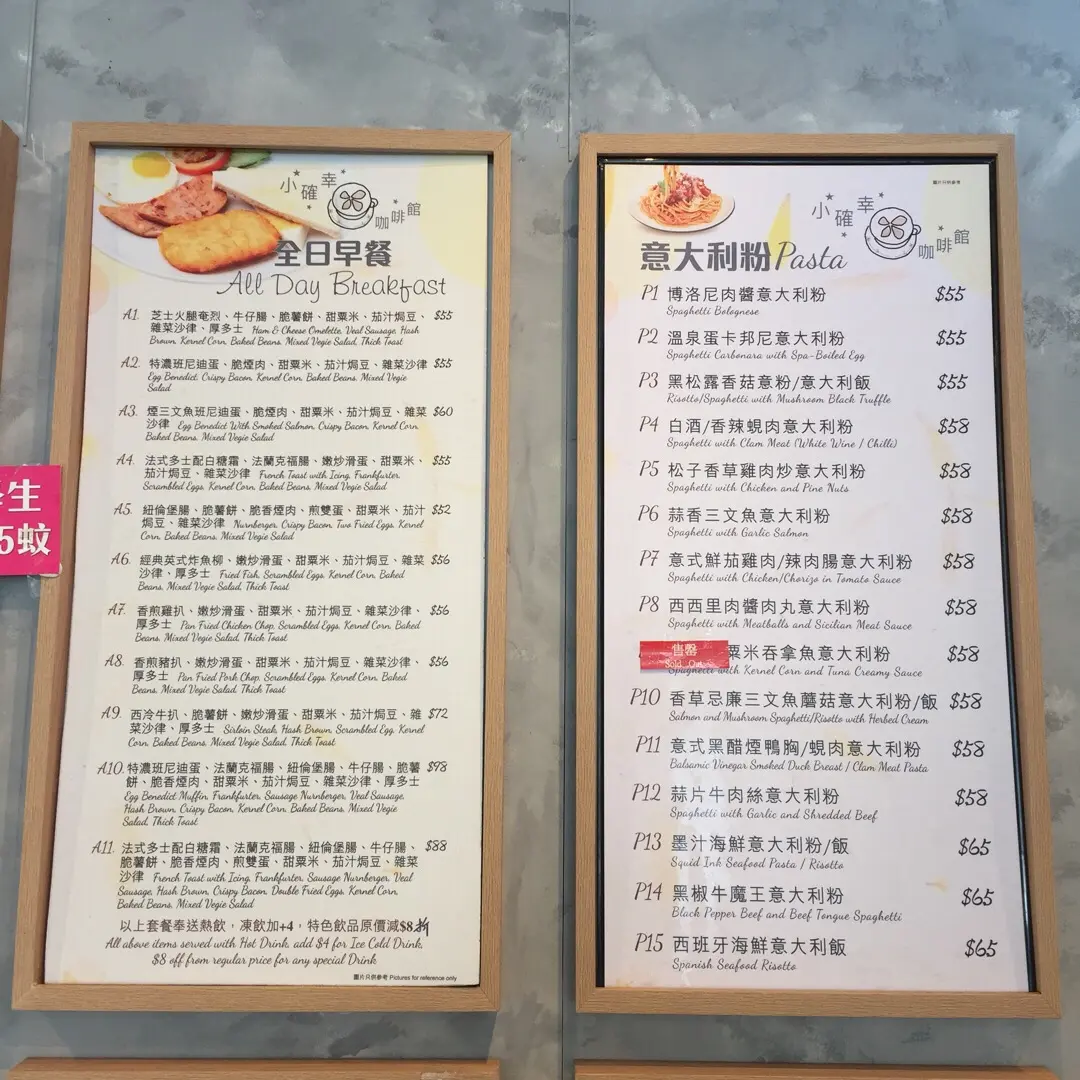 生
5蚊
小確幸
咖啡館
全日早餐
All Day Breakfast
A1. 芝士火腿奄列、牛仔腸、脆薯餅、甜粟米、茄汁焗豆、 $55
雜菜沙律、厚多士 Ham & Cheese Omelette, Veal Sausage, Hash
Brown, Kernel Corn, Baked Beans, Mixed Vegie Salad, Thick Toast
A2. 特濃班尼迪蛋、脆煙肉、甜粟米、茄汁焗豆、雜菜沙律 $55
Egg Benedict, Crispy Bacon, Kernel Corn, Baked Beans, Mixed Vegie
Salad
A3. 煙三文魚班尼迪蛋、脆煙肉、甜粟米、茄汁焗豆、雜菜 $60
沙律 Egg Benedict With Smoked Salmon, Crispy Bacon, Kernel Corn,
Baked Beans, Mixed Vegie Salad
A4. 法式多士配白糖霜、法蘭克福腸、嫩炒滑蛋、甜粟米、 $55
茄汁焗豆、雜菜沙律 French Toast with Icing, Frankfurter,
Scrambled Eggs, Kernel Corn, Baked Beans, Mixed Vegie Salad
A5. 紐倫堡腸、脆薯餅、脆香煙肉、煎雙蛋、甜粟米、茄汁 $52
焗豆、雜菜沙律 Nurnberger, Crispy Bacon, Two Fried Eggs, Kernel
Corn, Baked Beans, Mixed Vegie Salad
A6. 經典英式炸魚柳、嫩炒滑蛋、甜粟米、茄汁焗豆、雜菜 $56
沙律、厚多士 Fried Fish, Scrambled Eggs, Kernel Corn, Baked
Beans, Mixed Vegie Salad, Thick Toast
A7. 香煎雞扒、嫩炒滑蛋、甜粟米、茄汁焗豆、雜菜沙律、 $56
厚多士 Pan Fried Chicken Chop, Scrambled Eggs, Kernel Corn, Baked
Beans, Mixed Vegie Salad, Thick Toast
A8. 香煎豬扒、嫩炒滑蛋、甜粟米、茄汁焗豆、雜菜沙律、 $56
厚多士 Pan Fried Pork Chop, Scrambled Eggs, Kernel Corn, Baked
Beans, Mixed Vegie Salad, Thick Toast
A9. 西冷牛扒、脆薯餅、嫩炒滑蛋、甜粟米、茄汁焗豆、雜 $72
菜沙律、厚多士 Sirloin Steak, Hash Brown, Scrambled Egg, Kernel
Corn, Baked Beans, Mixed Vegie Salad, Thick Toast
A10. 特濃班尼迪蛋、法蘭克福腸、紐倫堡腸、牛仔腸、脆薯 $98
餅、脆香煙肉、甜粟米、茄汁焗豆、雜菜沙律、厚多士
Egg Benedict Muffin, Frankfurter, Sausage Nurnberger, Veal Sausage,
Hash Brown, Crispy Bacon, Kernel Corn, Baked Beans, Mixed Vegie
Salad, Thick Toast
A11. 法式多士配白糖霜、法蘭克福腸、紐倫堡腸、牛仔腸、 $88
脆薯餅、脆香煙肉、煎雙蛋、甜粟米、茄汁焗豆、雜菜
沙律 French Toast with Icing, Frankfurter, Sausage Nurnberger, Veal
Sausage, Hash Brown, Crispy Bacon, Double Fried Eggs, Kernel Corn,
Baked Beans, Mixed Vegie Salad
以上套餐奉送熱飲，凍飲加+4，特色飲品原價減$8.
All above items served with Hot Drink, add $4 for Ice Cold Drink,
$8 off from regular price for any special Drink
圖片只供參考 Pictures for reference only
圖片只供參考
小確幸
咖啡館
意大利粉 Pasta
P1 博洛尼肉醬意大利粉 $55
Spaghetti Bolognese
P2 溫泉蛋卡邦尼意大利粉 $55
Spaghetti Carbonara with Spa-Boiled Egg
P3 黑松露香菇意粉/意大利飯 $55
Risotto/Spaghetti with Mushroom Black Truffle
P4 白酒/香辣蜆肉意大利粉 $58
Spaghetti with Clam Meat (White Wine / Chilli)
P5 松子香草雞肉炒意大利粉 $58
Spaghetti with Chicken and Pine Nuts
P6 蒜香三文魚意大利粉 $58
Spaghetti with Garlic Salmon
P7 意式鮮茄雞肉/辣肉腸意大利粉 $58
Spaghetti with Chicken/Chorizo in Tomato Sauce
P8 西西里肉醬肉丸意大利粉 $58
Spaghetti with Meatballs and Sicilian Meat Sauce
售罄 粟米吞拿魚意大利粉 $58
Sold Out
Spaghetti with Kernel Corn and Tuna Creamy Sauce
P10 香草忌廉三文魚蘑菇意大利粉/飯 $58
Salmon and Mushroom Spaghetti/Risotto with Herbed Cream
P11 意式黑醋煙鴨胸/蜆肉意大利粉 $58
Balsamic Vinegar Smoked Duck Breast / Clam Meat Pasta
P12 蒜片牛肉絲意大利粉 $58
Spaghetti with Garlic and Shredded Beef
P13 墨汁海鮮意大利粉/飯 $65
Squid Ink Seafood Pasta / Risotto
P14 黑椒牛魔王意大利粉 $65
Black Pepper Beef and Beef Tongue Spaghetti
P15 西班牙海鮮意大利飯 $65
Spanish Seafood Risotto